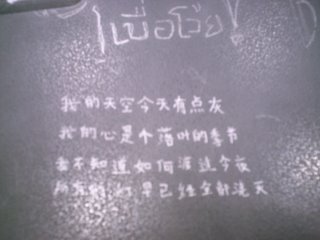 เบื่อโว้ย!
我的天空今天有点灰
我的心是个落叶的季节
我不知道如何渡过今夜
所有的灯早已经全部熄灭